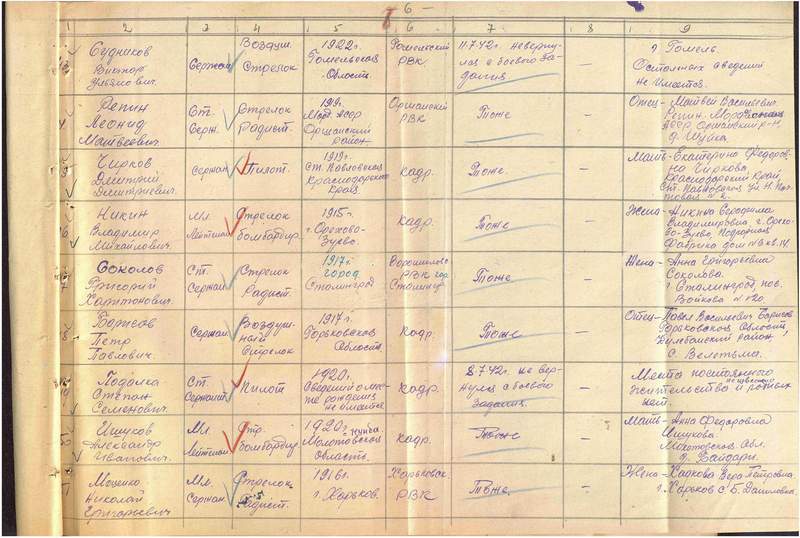 6
1 2 3 4 5 6 7 8 9
Судников
Виктор
Ульянович.
Сержан
Воздуш.
Стрелок
1922г.
Гомельская
Область
Гомельский
РВК
11.7.42г. неверну-
лся с боевого за-
дания
—
г Гомель.
Остальных сведений
не имеется.
Репин
Леонид
Матвеевич.
Ст.
Серж.
Стрелок
Радист.
1919г.
Морд. АССР
Оршанский
район
Оршанский
РВК
Тоже
—
Отец – Матвей Васильевич
Репин. Мордовская
АССР Оршанский р-н
Чирков
Дмитрий
Дмитриевич.
Сержан
Пилот.
1919г.
Ст. Павловская
Краснодарского
Края.
кадр.
Тоже.
—
Мать – Екатерина Федоров-
на Чиркова
Краснодарский край,
Никин
Владимир
Михайлович.
Мл
Лейтенан
Стрелок
бомбардир.
1915г.
Орехово-
Зуево.
кадр.
Тоже
—
Жена – Никина
Владимировна, г. Орехо-
во-Зуево, Подгорная
Фабрика дом №8 кв. 14
Соколов
Григорий
Харитонович.
Ст.
Сержан
Стрелок
Радист.
1917г
город
Сталинград
Ворошиловс
РВК гор.
Сталингр
Тоже
—
Жена – Анна Григоревна
Соколова.
г. Сталинград, пос.
Войкова № 120.
Борисов
Петр
Павлович.
Сержан
Воздуш-
ный
Стрелок
1917г.
Горьковская
Область.
Кадр.
Тоже
—
Отец – Павел Васильевич Борисов
Горьковская Область,
Кулебакский район,
с. Велетьма.
Подолка
Степан
Семенович.
Ст.
Сержант
Пилот
1920г.
Сведений о мес-
те рождения
не имеется
кадр.
8.7.42г. не вер-
нулся с боевого
задания.
—
Места постоянного
жительства и родных
нет.
Ишуков
Александр
Иванович.
Мл
Лейтенан
Стр.
бомбардир.
1920г.
Молотовская
область.
кадр.
Тоже
—
Мать – Анна Федоровна
Ишукова.
Молотовская Обл.
Моценко
Николай
Григорьевич
Мл.
Сержан.
Стрелок
Радист.
1916г.
г. Харьков.
Харьковск
РВК
Тоже.
—
Жена – Хадкова Вера Петровна.
г. Харьков с Б. Даниловка.